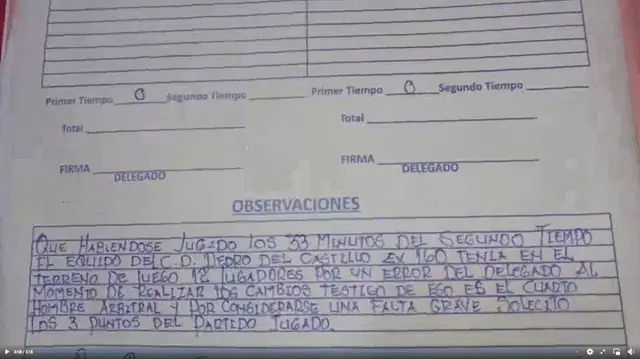 Primer Tiempo 0 Segundo Tiempo Primer Tiempo 0 Segundo Tiempo
Total Total
FIRMA FIRMA
DELEGADO DELEGADO
OBSERVACIONES
QUE HABIENDOSE JUGADO LOS 33 MINUTOS DEL SEGUNDO TIEMPO
EL EQUIPO DEL C.D. PEDRO DEL CASTILLO TENIA EN EL
TERRENO DE JUEGO 12 JUGADORES POR UN ERROR DEL DELEGADO AL
MOMENTO DE REALIZAR LOS CAMBIOS TESTIGO DE ESO ES EL CUARTO
HOMBRE ARBITRAL Y POR CONSIDERARSE UNA FALTA GRAVE SOLICITO
LOS 3 PUNTOS DEL PARTIDO JUGADO.